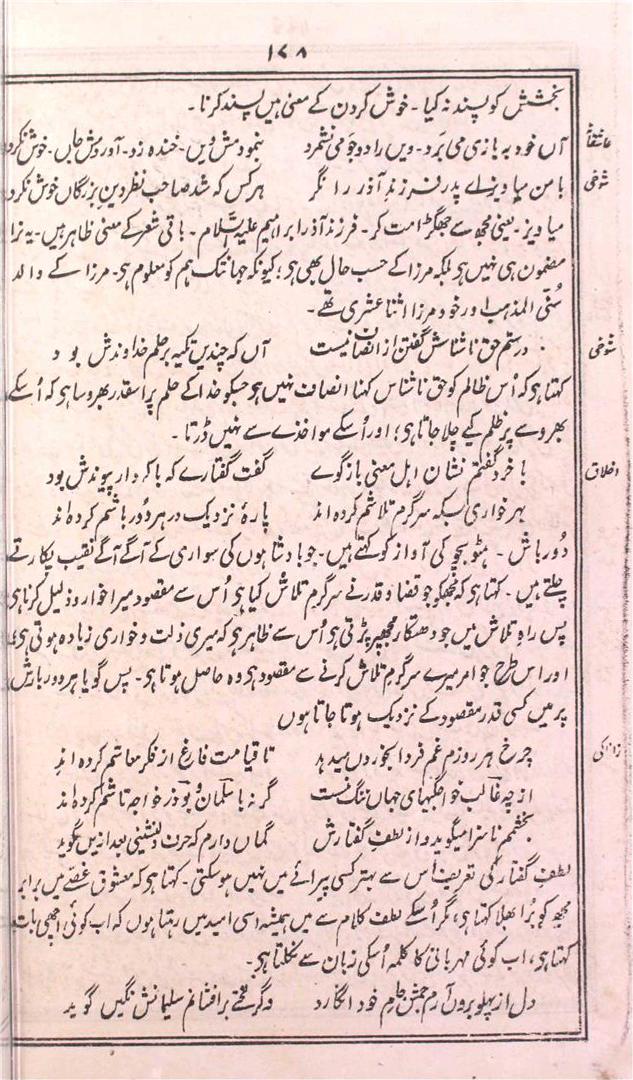 ۱۷۸
بخشش کو پسند نہ کیا - خوش کردن کے معنی ہیں پسند کرنا -
عاشقانہ
آں خود بہ بازی می برد - ویں را دو جو می نشمرد بنمودمش دیں - خندہ زد - آوردمش جاں - خوش نکرد
شوخی
با من میاویز اے پدر فرزندِ آذر را نگر ہر کس کہ شد صاحب نظر دینِ بزرگاں خوش نکرد
میاویز - یعنی مجھ سے جھگڑا مت کر - فرزندِ آذر ابراہیم علیہ السلام - باقی شعر کے معنی ظاہر ہیں - یہ نرا
مضمون ہی نہیں ہو بلکہ مرزا کے حسب حال بھی ہو؛ کیونکہ جہانتک ہم کو معلوم ہو - مرزا کے والد
سُنّی المذہب اور خود مرزا اثنا عشری تھے -
شوخی
درستم حق ناشناسش گفتن از انصاف نیست آں کہ چندیں تکیہ بر حلم خداوندش بود
کہتا ہو کہ اُس ظالم کو حق ناشناس کہنا انصاف نہیں ہو جسکو خدا کے حلم پر اسقدر بھروسا ہو کہ اُسکے
بھروسے پر ظلم کیے چلا جاتا ہو؛ اور اُسکے مواخذے سے نہیں ڈرتا -
اخلاق
با خرد گفتم نشان اہل معنی بازگوے گفت گفتارے کہ با کردار پیوندش بود
بہر خواری بسکہ سرگرم تلاشم کردہ اند پارۂ نزدیک در ہر دُور باشم کردہ اند
دُورباش - ہٹو بچو کی آواز کو کہتے ہیں - جو بادشاہوں کی سواری کے آگے آگے نقیب پکارتے
چلتے ہیں - کہتا ہو کہ مجھکو جو قضا و قدر نے سرگرم تلاش کیا ہو اُس سے مقصود میرا خوار و ذلیل کرنا ہو
پس راہِ تلاش میں جو دھتکار مجھپر پڑتی ہو اُس سے ظاہر ہو کہ میری ذلت و خواری زیادہ ہوتی ہو،
اور اس طرح جو امر میرے سرگرم تلاش کرنے سے مقصود ہو وہ حاصل ہوتا ہو - پس گویا ہر دور باش
پر میں کسی قدر مقصود کے نزدیک ہوتا جاتا ہوں
چرخ ہر روزم غم فردا بخوردن میدہد تا قیامت فارغ از فکر معاشم کردہ اند
از چہ غالب خواجگیہای جہاں ننگ نیست گر نہ با سلمان و بوذر خواجہ تاشم کردہ اند
بخشمم ناسزا میگوید و از لطف گفتارش گماں دارم کہ حرف دلنشینی بعد ازیں گوید
لطفِ گفتار کی تعریف اُس سے بہتر کسی پیرائے میں نہیں ہوسکتی - کہتا ہو کہ معشوق غصے میں برابر
مجھ کو بُرا بھلا کہتا ہو، مگر اُسکے لطف کلام سے میں ہمیشہ اسی امید میں رہتا ہوں کہ اب کوئی اچھی بات
کہتا ہو، اب کوئی مہربانی کا کلمہ اُسکی زبان سے نکلتا ہو -
دل از پہلو بروں آرم جمش جام خود انگارد وگر لختے برافشانم سلیمانش نگیں گوید